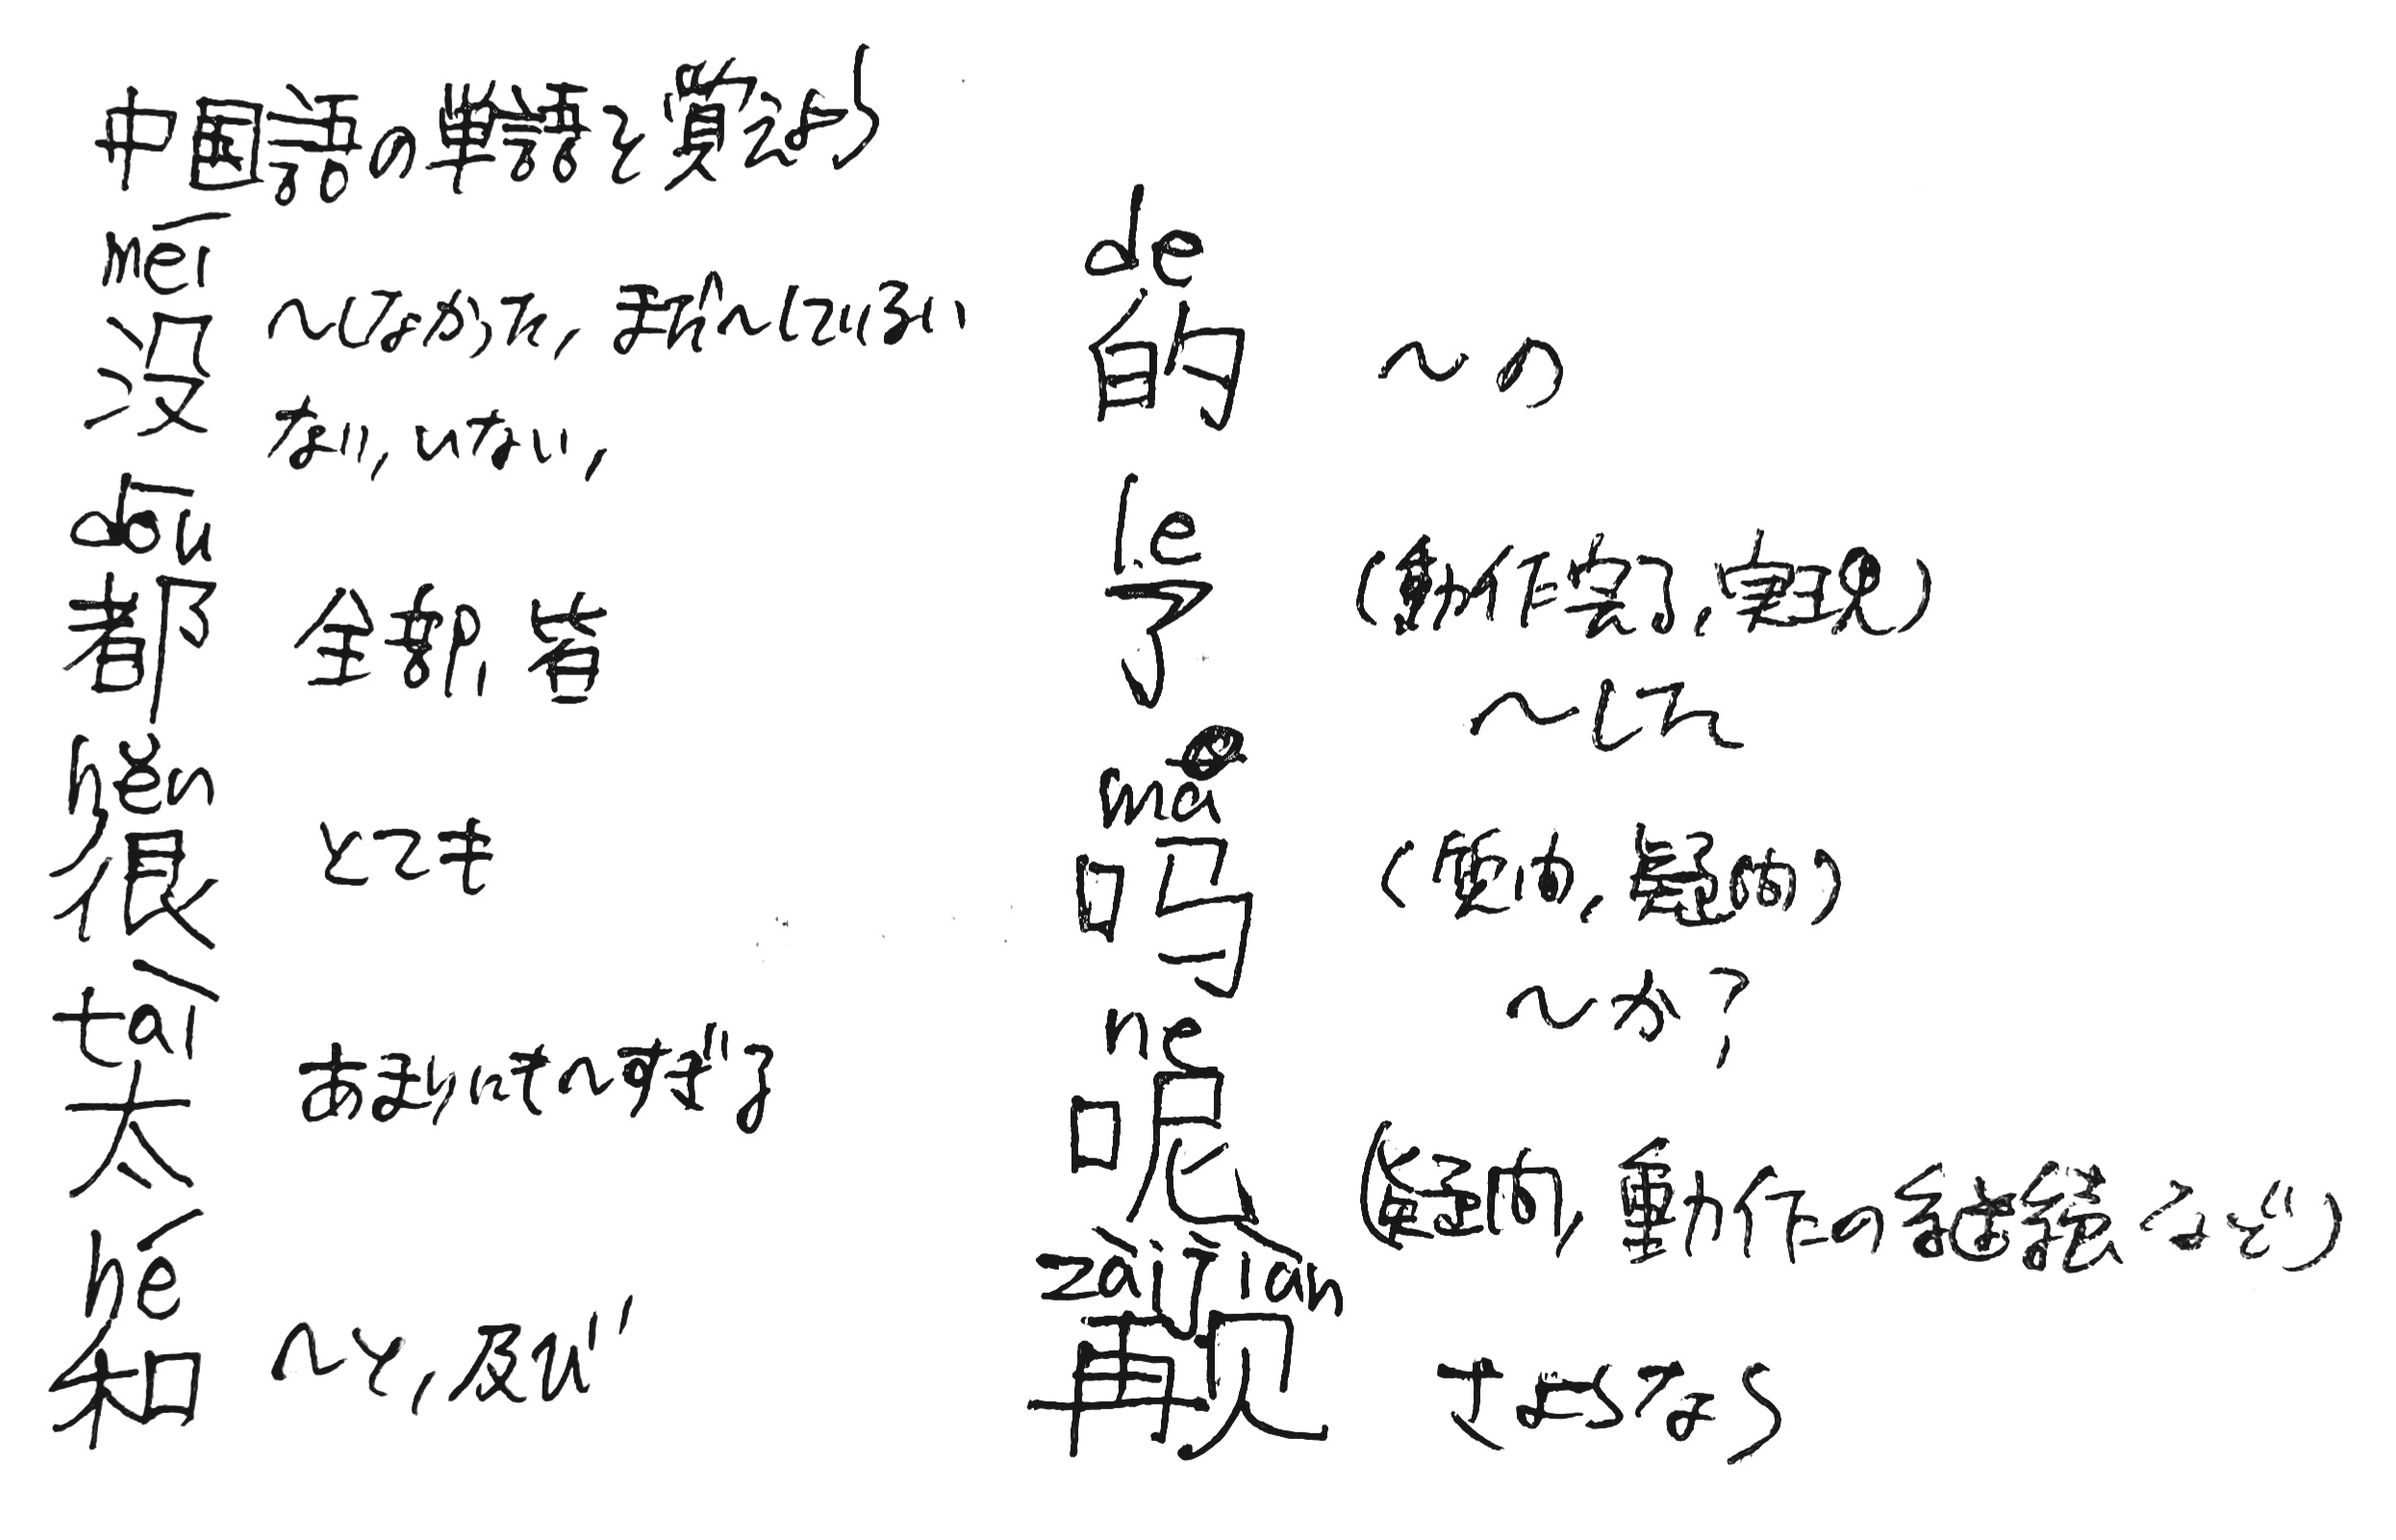 中国語の単語を覚えよう
méi
没 ~しなかった, まだ~していない
ない, いない,
dōu
都 全部, 皆
hěn
很 とても
tài
太 あまりにも~すぎる
hé
和 ~と, 及び
de
的 ~の
le
了 (動作完了, 実現)
~した
ma
吗 (質問, 疑問)
~か?
ne
呢 (疑問, 動作の継続など)
zàijiàn
再见 さようなら